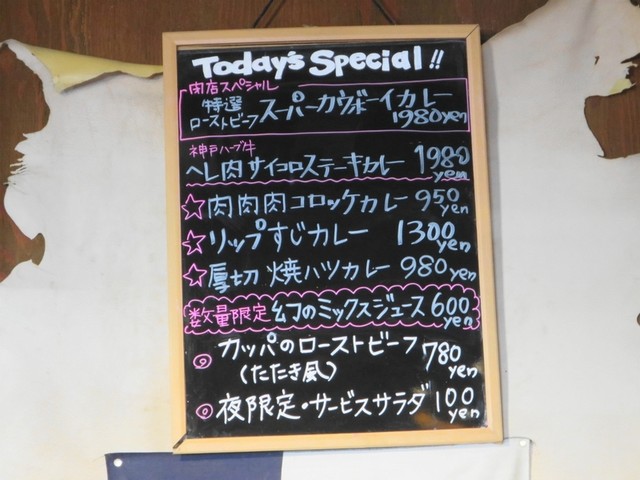 Today's Special!!
閉店スペシャル
特選
ローストビーフ スーパーカウボーイカレー
1980yen
神戸ハーブ牛
ヘレ肉サイコロステーキカレー 1980yen
☆肉肉肉コロッケカレー 950yen
☆リップすじカレー 1300yen
☆厚切焼ハツカレー 980yen
数量限定 幻のミックスジュース 600yen
◎カッパのローストビーフ 780yen
(たたき風)
◎夜限定・サービスサラダ 100yen